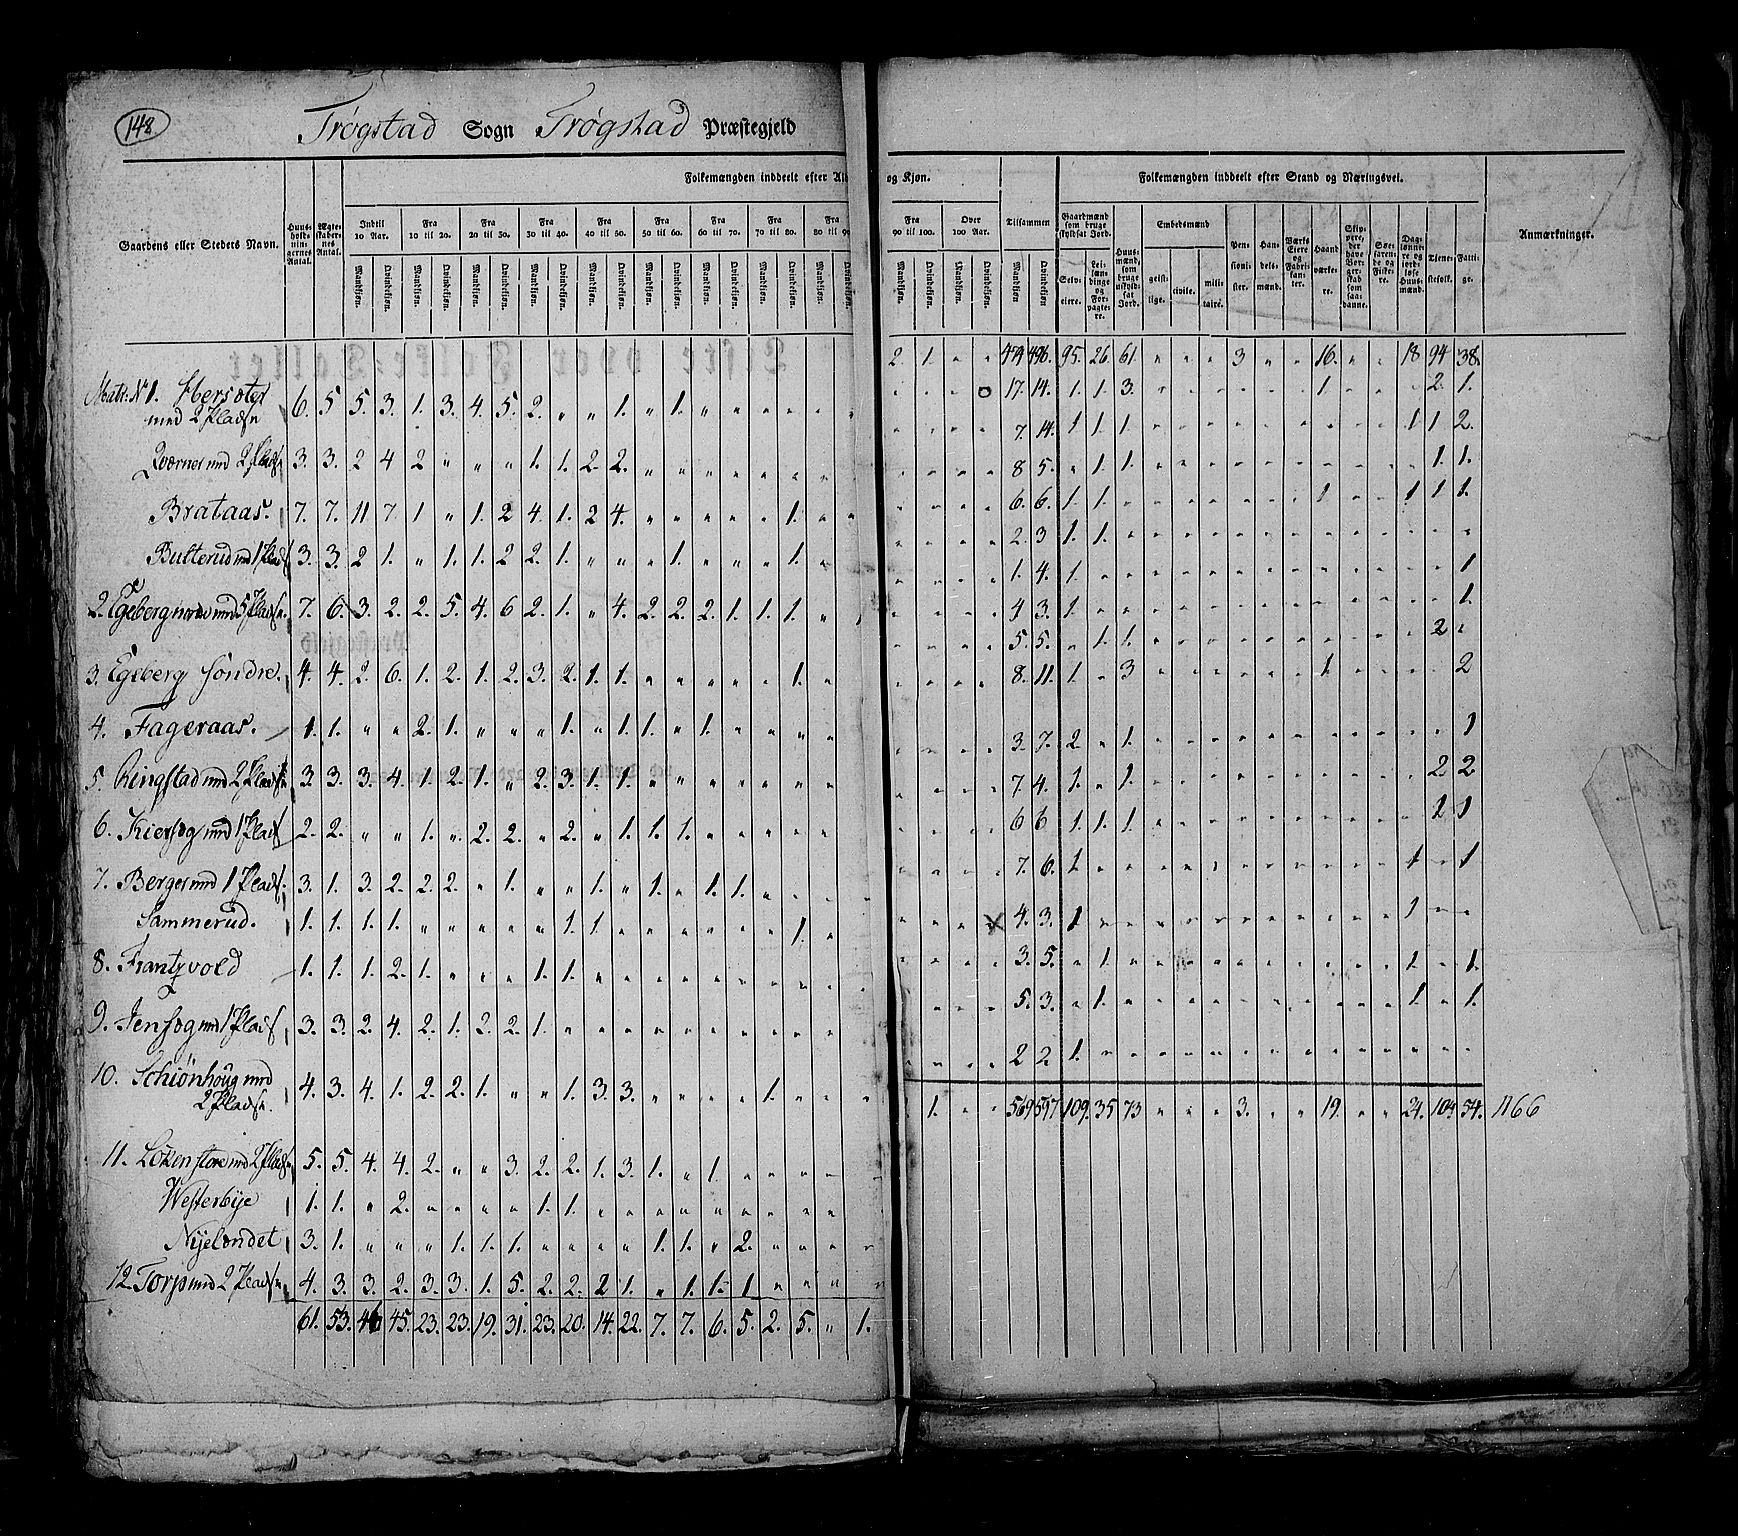 148
Trøgstad Sogn Trøgstad Præstegjeld
Gaardens eller Stedets Navn.
Huusholdningernes Antal.
Ægteskabernes Antal.
Folkemængden inddeelt efter Al og Kjøn.
Indtil 10 Aar. Fra 10 til 20. Fra 20 til 30. Fra 30 til 40. Fra 40 til 50. Fra 50 til 60. Fra 60 til 70. Fra 70 til 80. Fra 80 til 90
Mandkjøn. Qvindekjøn.
Matr: N 1. Hersøter 6. 5 5. 3. 1. 3. 4. 5. 2. „ „ 1. „ 1. „
med 2 Pladse
Qværner md 2 Pladse 3. 3. 2 4 2 „ „ „ 1. 1. 2. 2. „
Brataas. 7. 7. 11 7. 1 „ 1. 2 4. 1. 2 4. „ „ „ „ „ 1. „
Butterud md 1 Plads 3. 3. 2 1. „ 1. 1. 2 2. 1. „ „ „ 1. „ „ „ 1. „
2. Egeberg nordre md 5 Pladse. 7. 6. 3. 2. 2. 5. 4. 6 2. 1. „ 4. 2. 2. 2. 1. 1. 1. „
3. Egeberg søndre. 4. 4. 2. 6. 1. 2. 1. 2. 3. 2. 1. 1. „ „ „ „ „ 1. „
4. Fageraas. 1. 1. „ „ 2. 1. „ „ „ 1. „ 1. 1. „ 1. „
5. Ringstad md 2 Pladse 3. 3. 3. 4. 1. 2. 1. „ 2. 3. 1. 1. „
6. Kiersøg md 1 Plads 2. 2. „ „ 1. „ 2. 2. „ 2. „ 1. 1. 1. „
7. Berger md 1 Plads. 3. 1. 3. 2. 2. 2. „ 1. „ „ 1. „ 1. „ 1. 1. „
Sammerud. 1. 1. 1. 1. „ „ „ „ „ 1. 1. „ „ „ „ „ „ 1. „
8. Frantzvold 1. 1. 1. 2. 1. „ „ „ 1. 1. „
9. Jensøg md 1 Plads 3. 3. 2. 4. 2. 1. 2. 2. 1. „
10. Schiønhoug md 4. 3. 4. 1. 2. 2. 1. „ „ 1. 3. 3. „ „ „ „ 1. „
2 Pladse.
11. Løken store md 2 Pladse 5. 5. 4. 4. 2. „ „ 3. 2. 2. 1. 3. 1. „ 1. „
Westerbye 1. 1. „ 2. „ „ „ „ 1. 1. „
Nyelændet 3. 1. „ „ „ 1. 1. 1. „ „ „ „ 1. 1. „ 2. „
12. Torp md 2 Pladse 4. 3. 3. 2. 3. 3. 1. 5. 2. 2. 2 1. „ 1. 1. 1 „
61. 53. 46 45. 23. 23. 19. 31. 23. 20. 14. 22. 7. 7. 6. 5. 2. 5. „ 1.
Fra 90 til 100. Over 100 Aar. Tilsammen
Mandkjøn Qvindekjøn. Mandkjøn. Qvindekjøn Mandkjøn Qvindekjøn.
Folkemængden inddeelt efter Stand og Næringsvei.
Gaardmænd som bruge skyldsat Jord.
Selveiere. Leilændinge og Forpagtere.
Huusmænd, som bruge uskyldsat Jord.
Embedsmænd
geistlige. civile. militaire.
Pensionister. Handelsmænd. Værks Eiere og Fabrikanter. Haandværkere. Skippere, der have Borgerskab som saadanne. Søefarende og Fiskere. Daglønnere og jordløse Huusmænd. Tjenestefolk. Fattige.
Anmærkninger.
2. 1. „ „ 479 496. 95. 26. 61. „ „ „ 3 „ „ 16. „ „ 18 94 38.
„ „ „ o 17. 14. 1. 1. 3. „ „ „ „ „ „ 1. „ „ „ 2. 1.
7. 14. 1 1. 1 „ 1 1 2.
8 5. „ 1. 1. „ 1. 1.
6. 6. 1. 1. „ 1 „ „ 1 1 1.
2. 3 1. 1. „
1. 4. 1. „ 1
4 3. 1. „ 1.
5. 5. „ 1. 1. „ 2 „
8. 11. 1. „ 3 „ 1 „ 2
3. 7. 2. „ 1. „ 1
7. 4. 1. „ 1. „ 2 2
6 6 1. 1. 1. „ 2 1
7. 6. 1 „ 1 „ 1
x 4. 3. 1 „ 1. „
3. 5. „ 1. „ 1. „ 1.
5. 3. „ 1. „ 1. „ 1.
2 2 1. „
1. „ „ 569 597 109. 35 73 „ „ „ 3. „ „ 19. „ „ 24. 104. 54. 1166